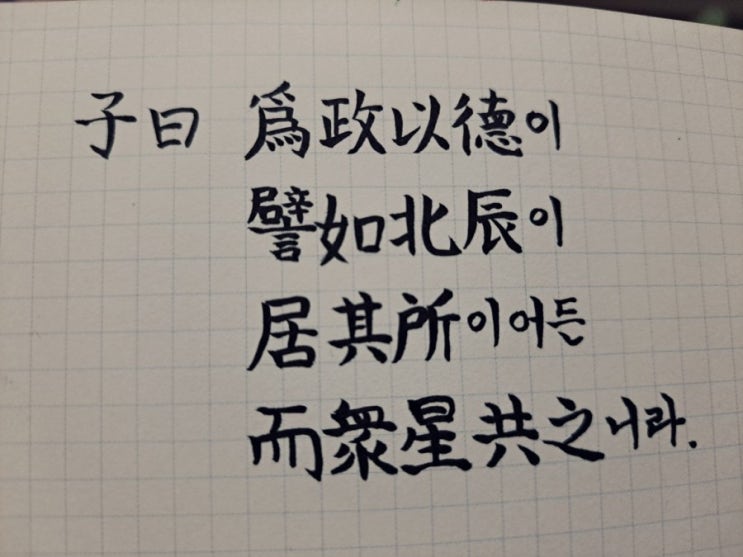 子曰 爲政以德이
譬如北辰이
居其所이어든
而衆星共之니라.